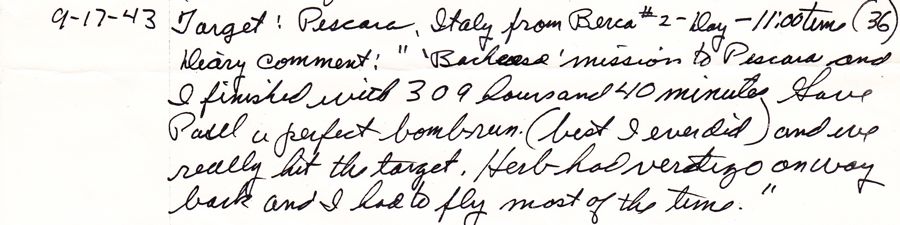 9-17-43 Target: Pescara, Italy from Berca #2 - Day - 11:00 time (36)
Diary comment: " ' ' mission to Pescara and
I finished with 309 hours and 40 minutes. Gave
Patll a perfect bombrun. (best I ever did) and we
really hit the target. Herb had vertigo on way
back and I had to fly most of the time."